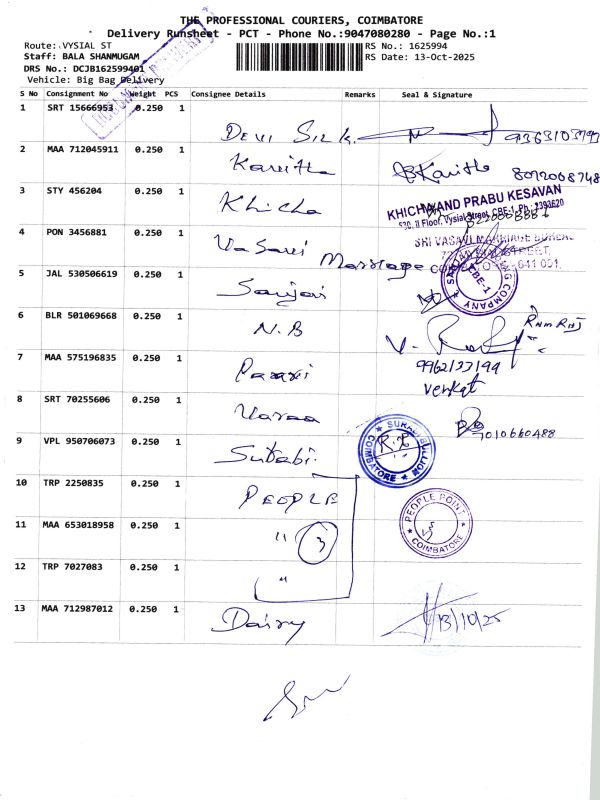 THE PROFESSIONAL COURIERS, COIMBATORE
Delivery Runsheet - PCT - Phone No.:9047080280 - Page No.:1
Route: VYSIAL ST
RS No.: 1625994
Staff: BALA SHANMUGAM
RS Date: 13-Oct-2025
DRS No.: DCJB162599401
Vehicle: Big Bag Delivery
S No Consignment No Weight PCS Consignee Details Remarks Seal & Signature
1 SRT 15666953 0.250 1
2 MAA 712045911 0.250 1 Kavitha Kavitha
3 STY 456204 0.250 1 Khicha KHICHA AND PRABU KESAVAN
4 PON 3456881 0.250 1 Vasavi Marriage SRI VASAVI MARRIAGE BUREAU
5 JAL 530506619 0.250 1 Sanjai
6 BLR 501069668 0.250 1 N.B
7 MAA 575196835 0.250 1 Venkat
8 SRT 70255606 0.250 1 7010660488
9 VPL 950706073 0.250 1 COIMBATORE
10 TRP 2250835 0.250 1 PEOPLE PEOPLE POINT COIMBATORE
11 MAA 653018958 0.250 1 " 3
12 TRP 7027083 0.250 1 "
13 MAA 712987012 0.250 1 Dairy 13/10/25